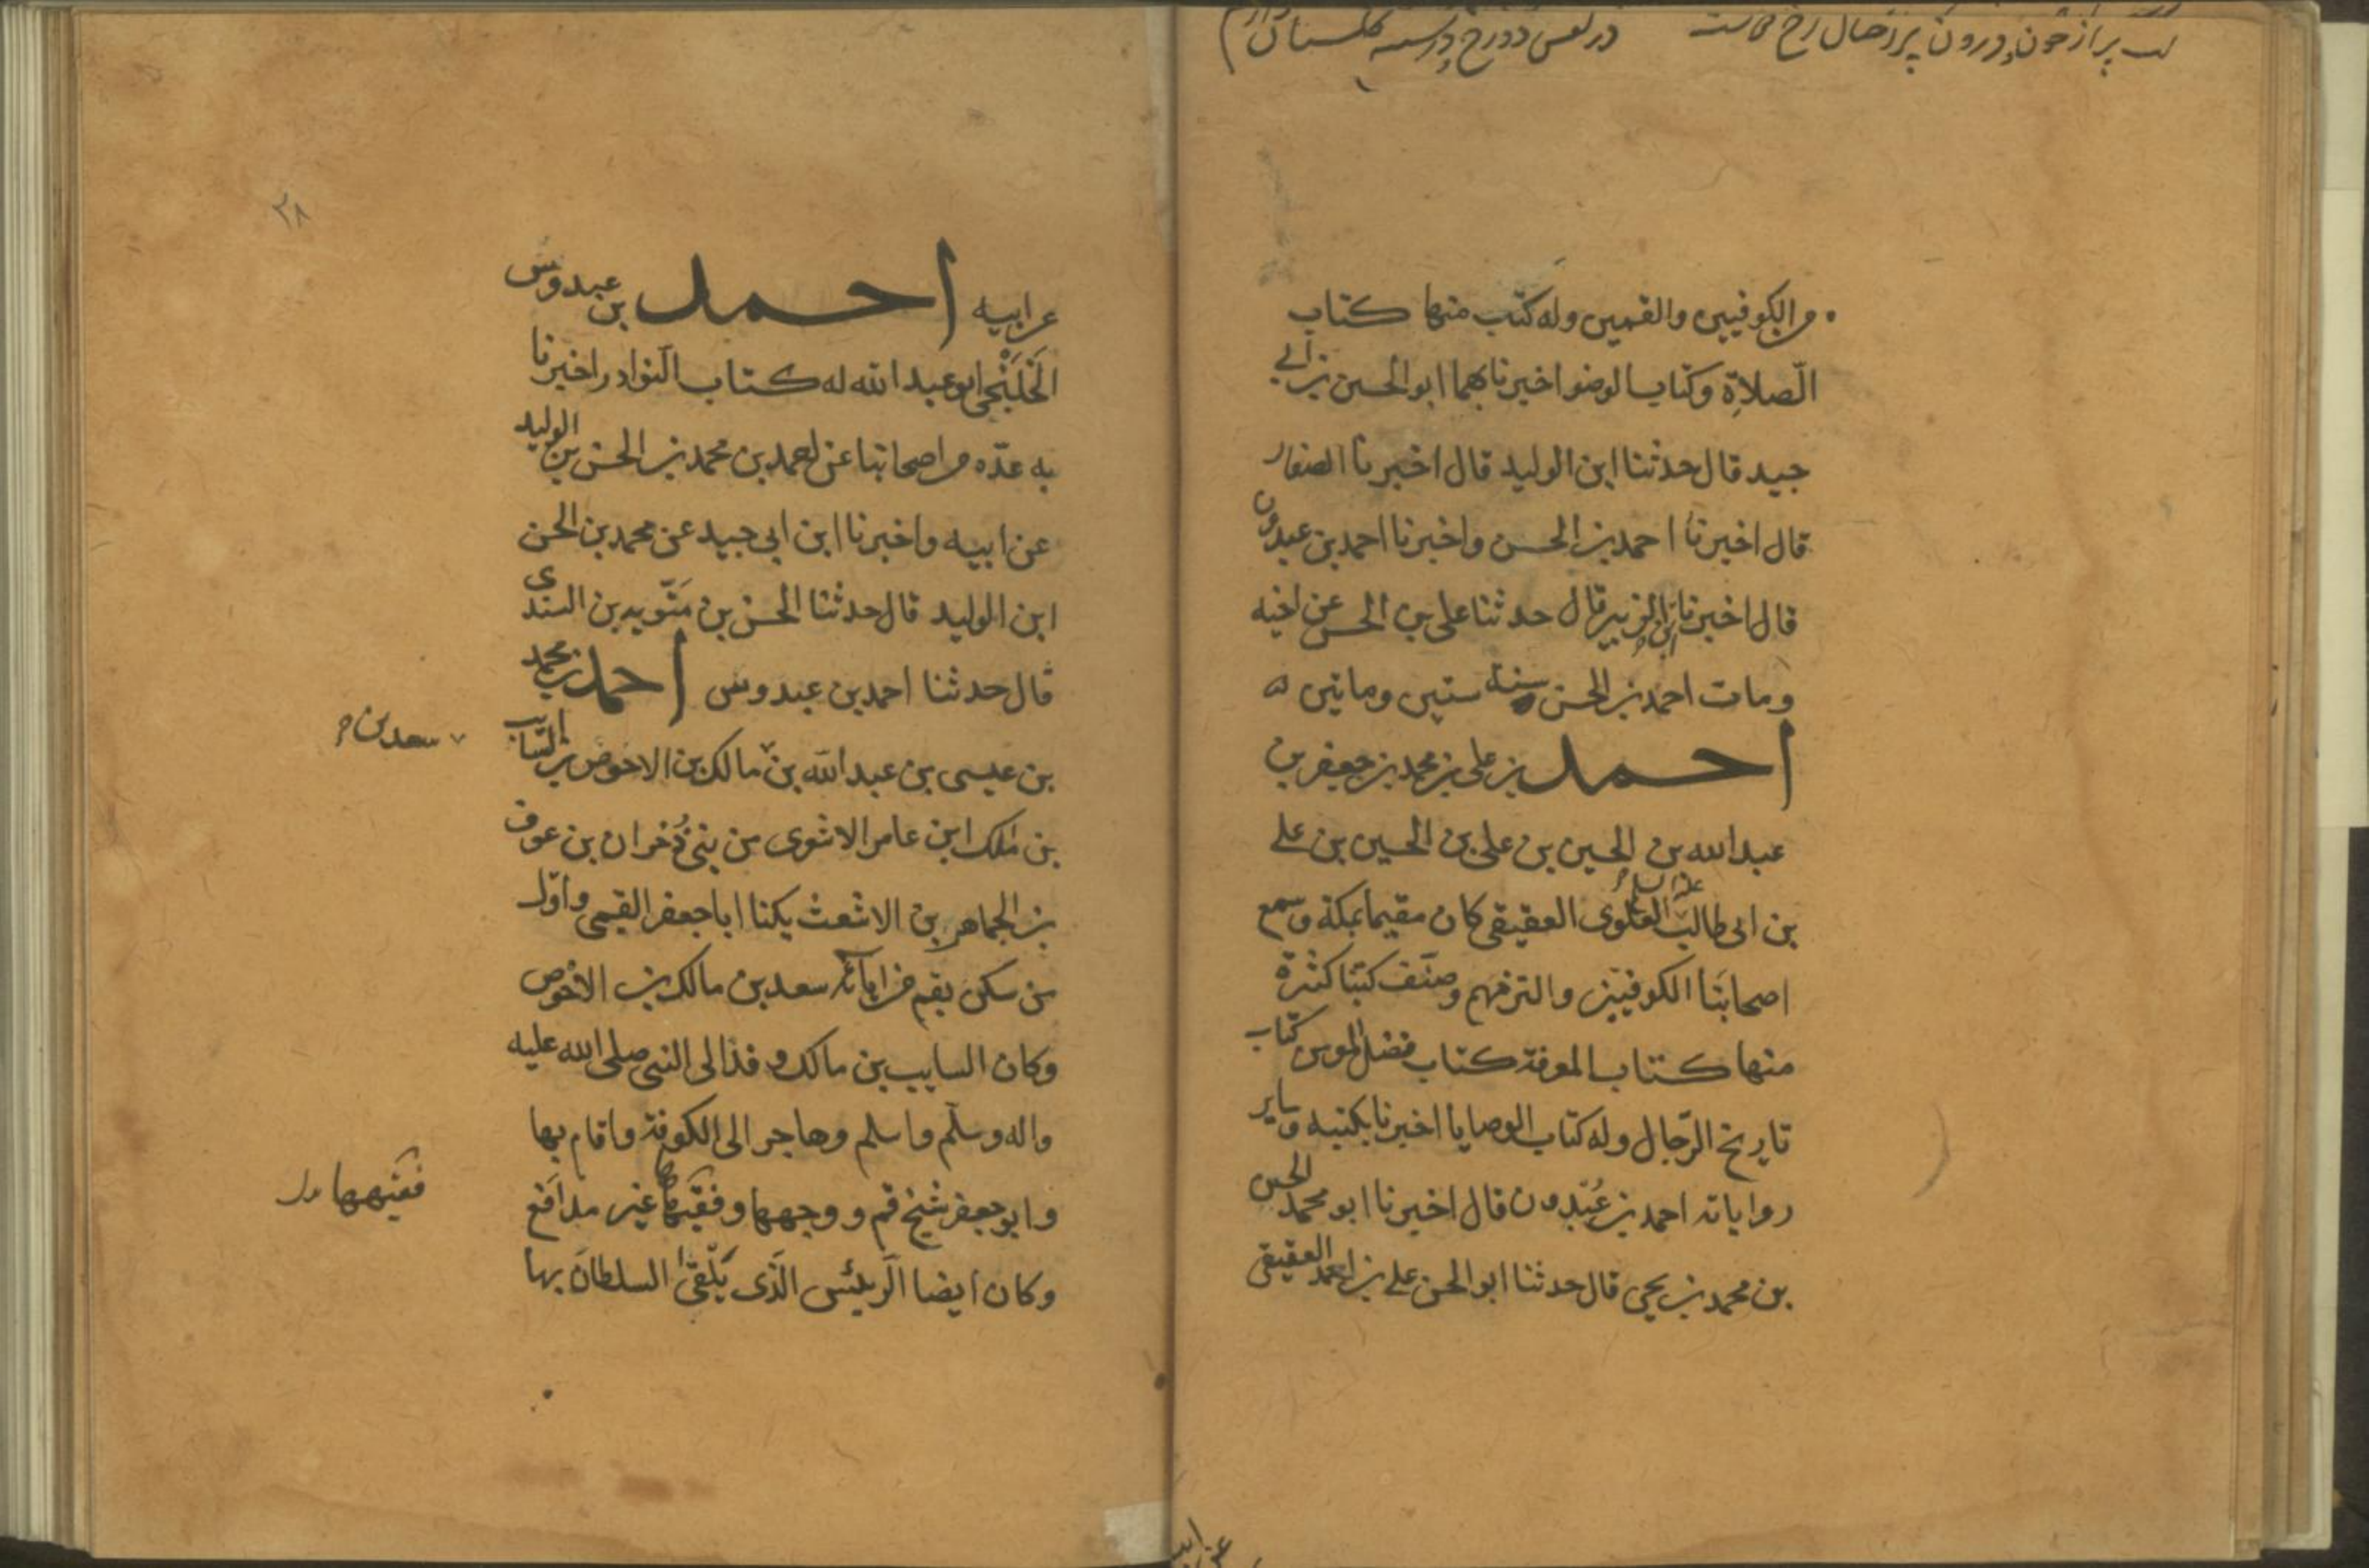 لب پر از خون درون پر از خال رخ
من الكوفيين والقميين وله كتب منها كتاب
الصّلاة وكتاب الوضو اخبرنا بهما ابو الحسين بن ابي
جيد قال حدثنا ابن الوليد قال اخبرنا الصفار
قال اخبرنا احمد بن الحسن واخبرنا احمد بن عبدون
قال اخبرنا ابن الزبير قال حدثنا على بن الحسن عن اخيه
ومات احمد بن الحسن سنة ستين ومايتين
احمد بن على بن محمد بن جعفر بن
عبد الله بن الحسين بن على بن الحسين بن على
بن ابى طالب عليه السلام العلوى العقيقى كان مقيما بمكة وسمع
اصحابنا الكوفيين والترمنهم وصنّف كتبا كثيرة
منها كتاب المعرفة كتاب فضل المومن كتاب
تاريخ الرّجال وله كتاب الوصايا اخبرنا بكتبه وساير
رواياته احمد بن عُبدون قال اخبرنا ابو محمد الحسن
بن محمد بن يحيى قال حدثنا ابو الحسن على بن احمد العقيقى
عن ابيه
٢٨
عن ابيه احمد بن عبدوس
الخَلَنْجى ابو عبد الله له كتاب النّوادر اخبرنا
به عدّه من اصحابنا عن احمد بن محمد بن الحسن بن الوليد
عن ابيه واخبرنا ابن ابى جيد عن محمد بن الحسن
ابن الوليد قال حدثنا الحسن بن متّويه بن السندى
قال حدثنا احمد بن عبدوس احمد بن محمد
بن عيسى بن عبد الله بن مالك بن الاخوص بن السّايب
سعد بن
بن ملك ابن عامر الاشعرى من بنى ذُخران بن عوف
بن الجماهر بن الاشعث يكنا ابا جعفر القمى واوّل
من سكن بقم من ابائه سعد بن مالك بن الاخوص
وكان السايب بن مالك وفد الى النبى صلى الله عليه
واله وسلّم واسلم وهاجر الى الكوفة واقام بها
وابو جعفر شيخ قم ووجهها وفقيهها غير مدافع
فقيهها
وكان ايضا الرّئيس الّذى يَلقىٰ السلطان بها